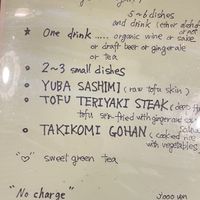 5~6 dishes
and drink (other alcohol
or not
★ One drink ..... organic wine or sake
or draft beer or gingerale
or tea
○ 2~3 small dishes
○ YUBA SASHIMI (raw tofu skin)
○ TOFU TERIYAKI STEAK (deep fried
tofu ser-fried with gingerale
○ TAKIKOMI GOHAN (cooked rice
with vegetables)
"♡" sweet green tea
"No charge"
yen